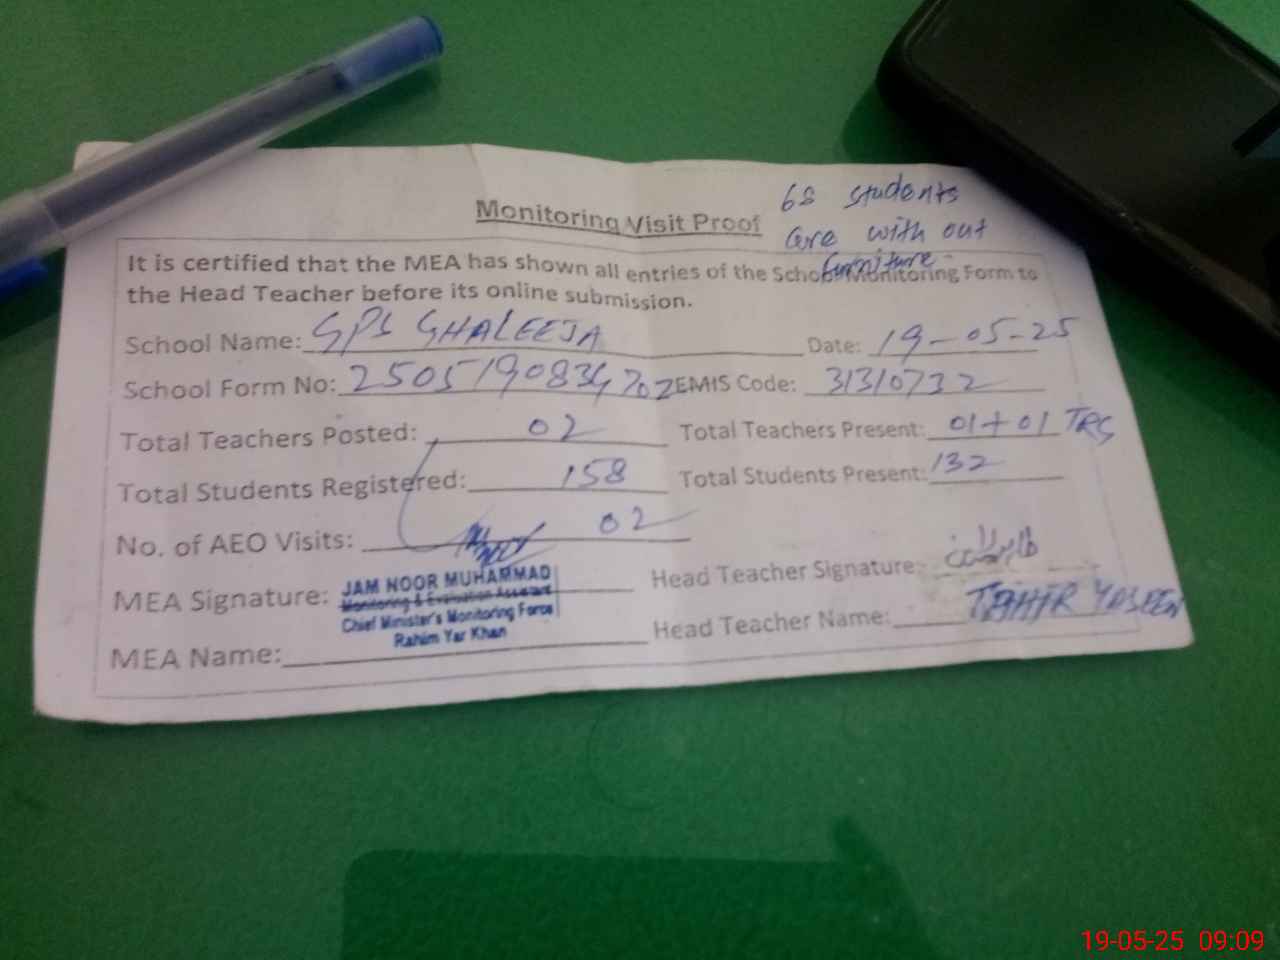 Monitoring Visit Proof
68 students
are with out
furniture
It is certified that the MEA has shown all entries of the School Monitoring Form to
the Head Teacher before its online submission.
School Name: GPS GHALEEJA Date: 19-05-25
School Form No: 2505190834702 EMIS Code: 31310732
Total Teachers Posted: 02 Total Teachers Present: 01+01 TRS
Total Students Registered: 158 Total Students Present: 132
No. of AEO Visits: 02
MEA Signature: Head Teacher Signature:
JAM NOOR MUHAMMAD
Monitoring & Evaluation Assistant
Chief Minister's Monitoring Force
Rahim Yar Khan
MEA Name: Head Teacher Name: TAHIR YASEEN
19-05-25 09:09